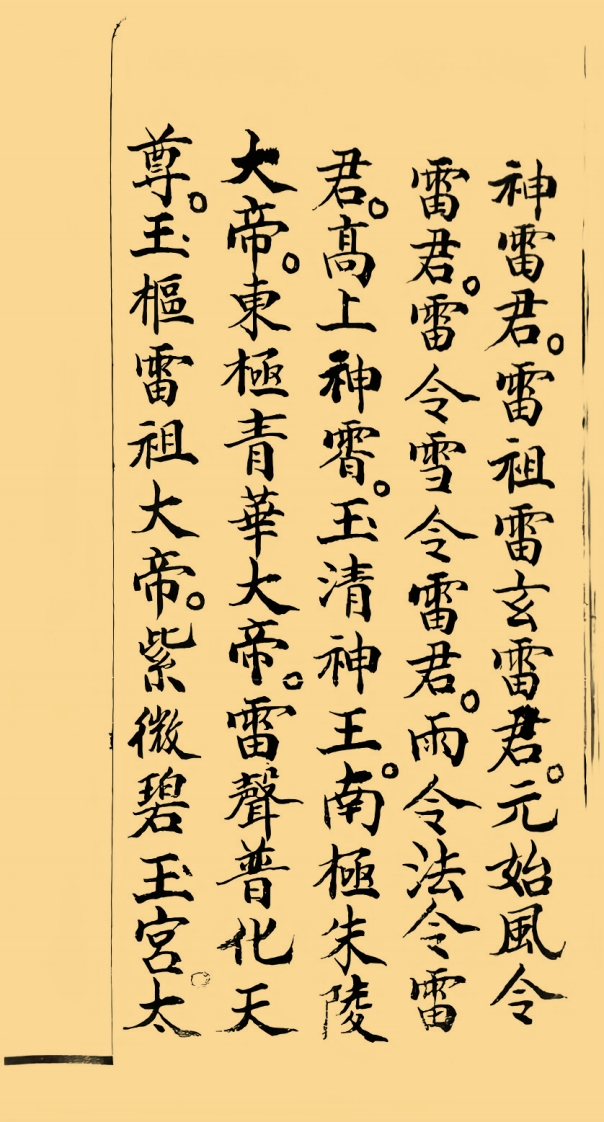 神雷君。雷祖雷玄雷君。元始風令
雷君。雷令雪令雷君。雨令法令雷
君。高上神霄。玉清神王。南極朱陵
大帝。東極青華大帝。雷聲普化天
尊。玉樞雷祖大帝。紫微碧玉宮。太